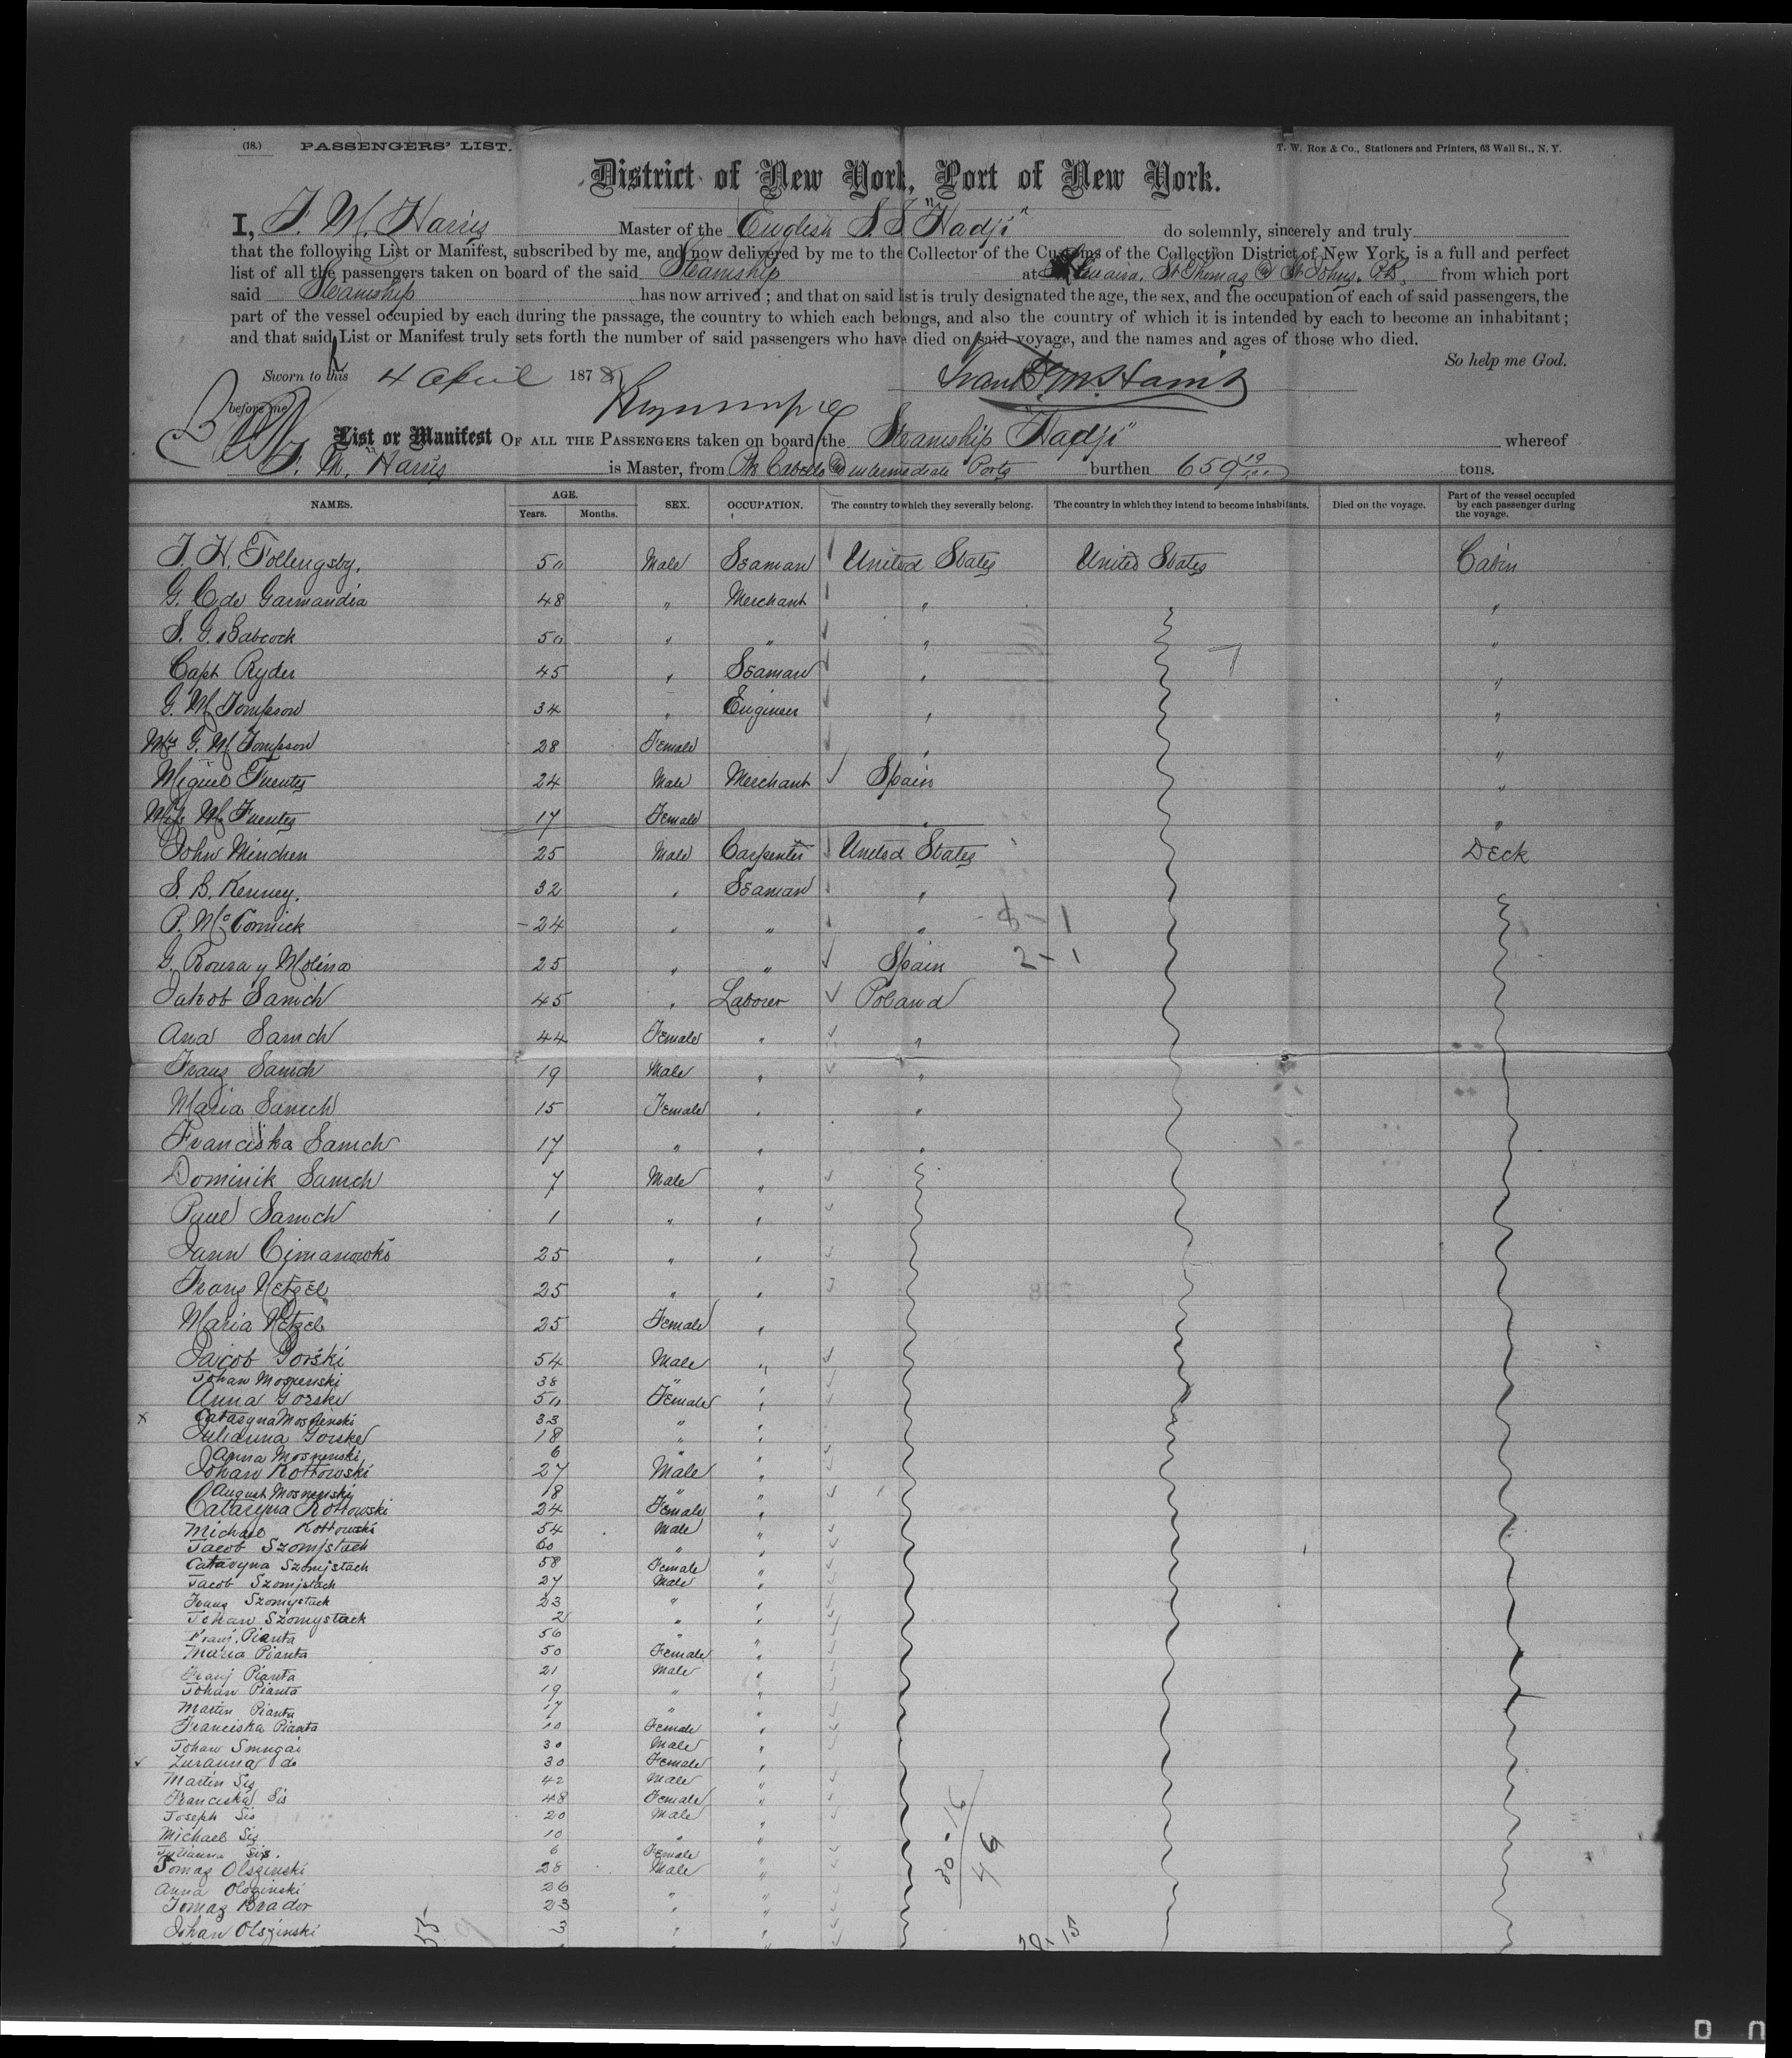 (18.) PASSENGERS' LIST. T. W. Roe & Co., Stationers and Printers, 63 Wall St., N. Y.
District of New York, Port of New York.
I, F. M. Harris Master of the English S.S "Hadji" do solemnly, sincerely and truly
that the following List or Manifest, subscribed by me, and now delivered by me to the Collector of the Customs of the Collection District of New York, is a full and perfect
list of all the passengers taken on board of the said Steamship at St Thomas @ St Johns. P.R., from which port
said Steamship has now arrived; and that on said list is truly designated the age, the sex, and the occupation of each of said passengers, the
part of the vessel occupied by each during the passage, the country to which each belongs, and also the country of which it is intended by each to become an inhabitant;
and that said List or Manifest truly sets forth the number of said passengers who have died on said voyage, and the names and ages of those who died.
So help me God.
Sworn to this 4 April 1878
before me
List or Manifest OF ALL THE PASSENGERS taken on board the Steamship "Hadji" whereof
F. M. Harris is Master, from Pto Cabello @ intermediate Ports burthen 659 19/100 tons.
NAMES. AGE. Years. Months. SEX. OCCUPATION. The country to which they severally belong. The country in which they intend to become inhabitants. Died on the voyage. Part of the vessel occupied by each passenger during the voyage.
F. H. Follengsby. 50 Male Seaman United States United States Cabin
G. C de Garmandia 48 " Merchant " "
S. G. Babcock 50 " " " "
Capt Ryder 45 " Seaman " "
G. M Tompson 34 " Engineer " "
Mrs G. M Tompson 28 Female " "
Miguel Fuentes 24 Male Merchant Spain "
Mrs M. Fuentes 17 Female " "
John Minchen 25 Male Carpenter United States Deck
S. B. Kenney. 32 " Seaman "
P. McCormick 24 " " "
G. Roura y Molina 25 " " Spain
Jakob Samch 45 " Laborer Poland
Ana Samch 44 Female " "
Franz Samch 19 Male " "
Maria Samch 15 Female " "
Franciska Samch 17 " " "
Dominik Samch 7 Male "
Paul Samch 1 " "
Jann Cimanowks 25 " "
Franz Netzel 25 " "
Maria Netzel 25 Female "
Jacob Gorski 54 Male "
Johan Mospenski 38 " "
Anna Gorske 50 Female "
Catargna Mospenski 33 " "
Julianna Gorske 18 " "
Anna Mospenski 6 " "
Johan Kottowski 27 Male "
August Mospenski 18 " "
Cataryna Kottowski 24 Female "
Michael Kottowski 54 Male "
Jacob Szomjstack 60 " "
Cataryna Szomjstack 58 Female "
Jacob Szomjstack 27 Male "
Franz Szomystack 23 " "
Johan Szomystack 2 " "
Franj. Pianta 56 " "
Maria Pianta 50 Female "
Franj Pianta 21 Male "
Johan Pianta 19 " "
Martin Pianta 17 " "
Franciska Pianta 10 Female "
Johan Smugai 30 Male "
Zuranna do 30 Female "
Martin Sis 42 Male "
Franciska Sis 48 Female "
Joseph Sis 20 Male "
Michael Sis 10 " "
Julianna Sis. 6 Female "
Tomaz Olszinski 28 Male "
Anna Olszinski 26 " "
Tomaz Brador 23 " "
Johan Olszinski 3 " "